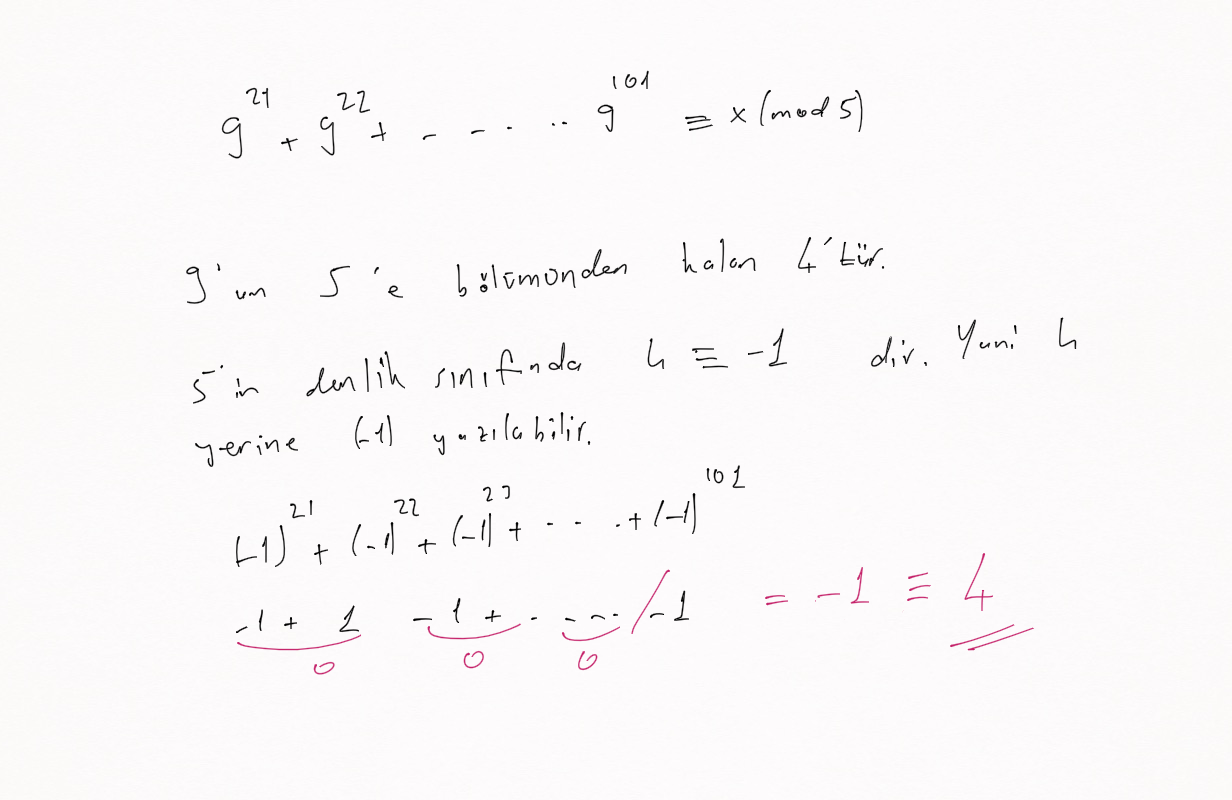 9^21 + 9^22 + - - - . .. 9^101 ≡ x (mod 5)
9'un 5'e bölümünden kalan 4'tür.
5'in denlik sınıfında 4 ≡ -1 dir. Yani 4
yerine (-1) yazılabilir.
(-1)^21 + (-1)^22 + (-1)^23 + . - . .+ (-1)^101
-1 + 1 -1 + . - -- . / -1 = -1 ≡ 4
0 0 0